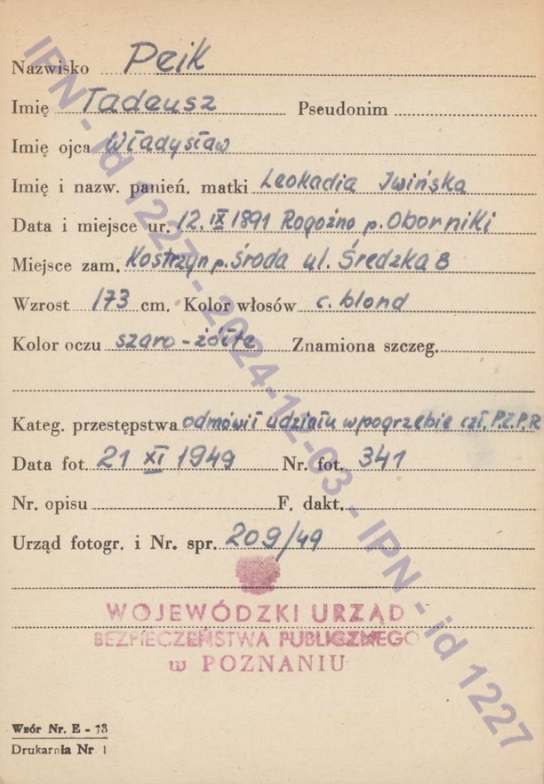 Nazwisko Peik
Imię Tadeusz Pseudonim
Imię ojca Władysław
Imię i nazw. panień. matki Leokadia Iwińska
Data i miejsce ur. 12. IX 1891 Rogoźno p. Oborniki
Miejsce zam. Kostrzyn p. Środa ul. Średzka 8
Wzrost 173 cm. Kolor włosów c. blond
Kolor oczu szaro-żółte Znamiona szczeg.
Kateg. przestępstwa odmówił udziału w pogrzebie czł. P.Z.P.R
Data fot. 21 XI 1949 Nr. fot. 341
Nr. opisu F. dakt.
Urząd fotogr. i Nr. spr. 209/49
WOJEWÓDZKI URZĄD
BEZPIECZEŃSTWA PUBLICZNEGO
w POZNANIU
Wzór Nr. E - 73
Drukarnia Nr 1
IPN - id 1227 - 2024-12-03 - IPN - id 1227